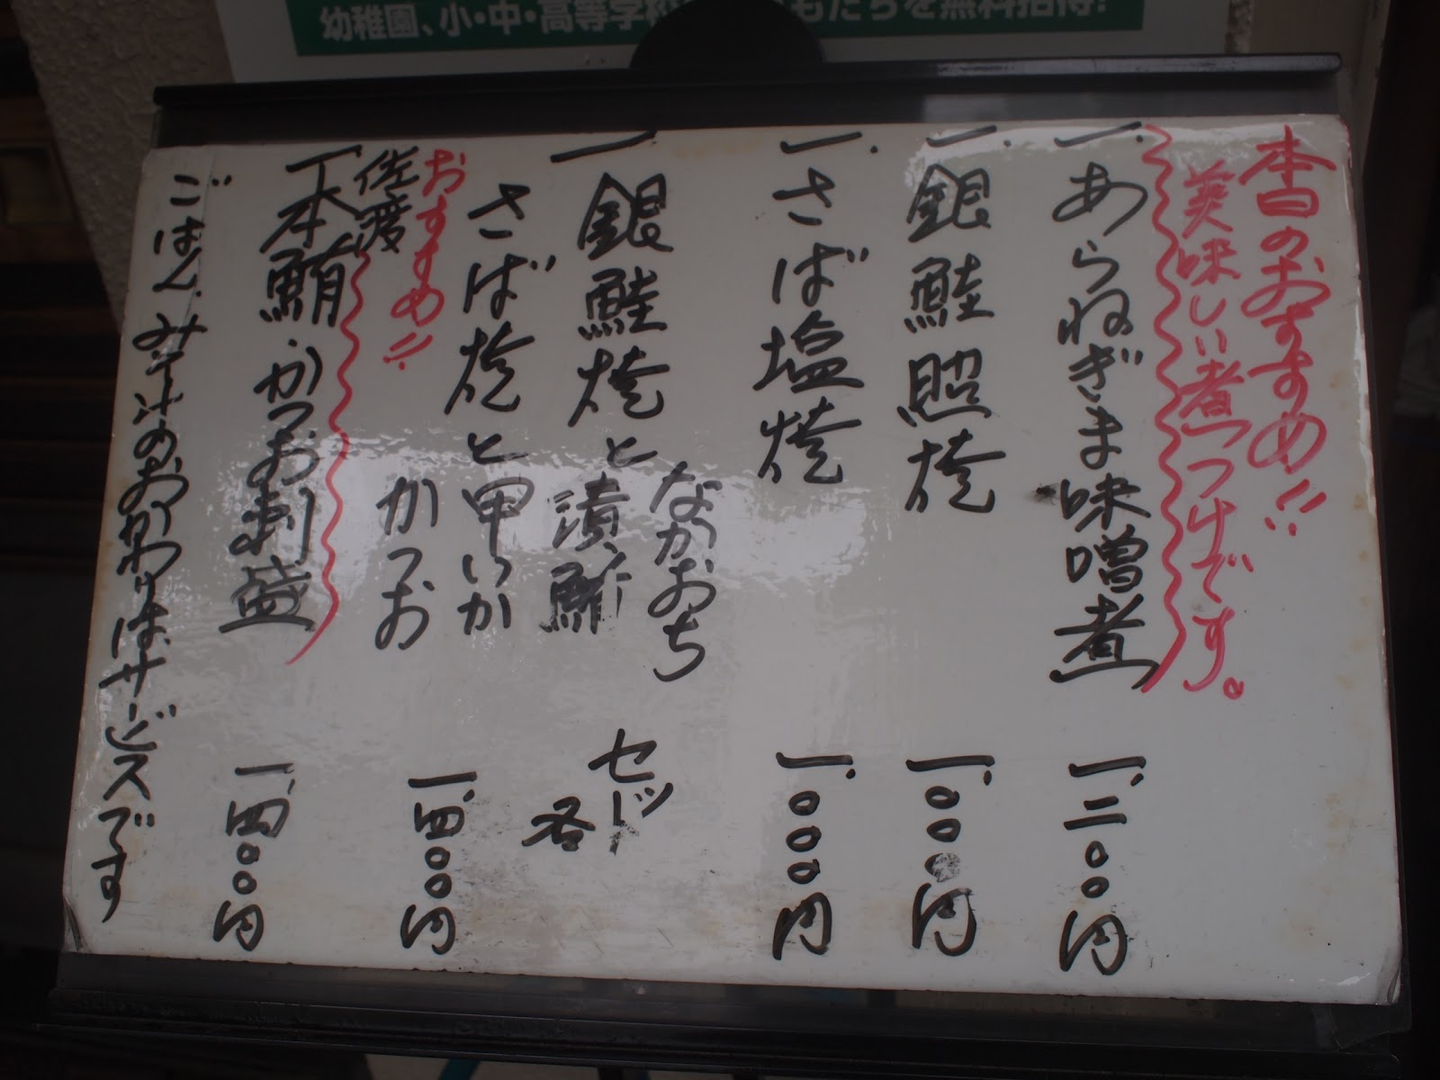 幼稚園、小・中・高等学校
もたちを無料招待!
本日のおすすめ!!
美味しい煮つけです。
一、あらねぎま味噌煮 一、二〇〇円
一、銀鮭照焼 一、〇〇〇円
一、さば塩焼 一、〇〇〇円
なかおち
一、銀鮭焼と漬鮪 セット
さば焼と甲いか 各
かつお 一、四〇〇円
おすすめ!!
佐渡
一、本鮪・かつお刺盛 一、四〇〇円
ごはん、みそ汁のおかわりは、サービスです